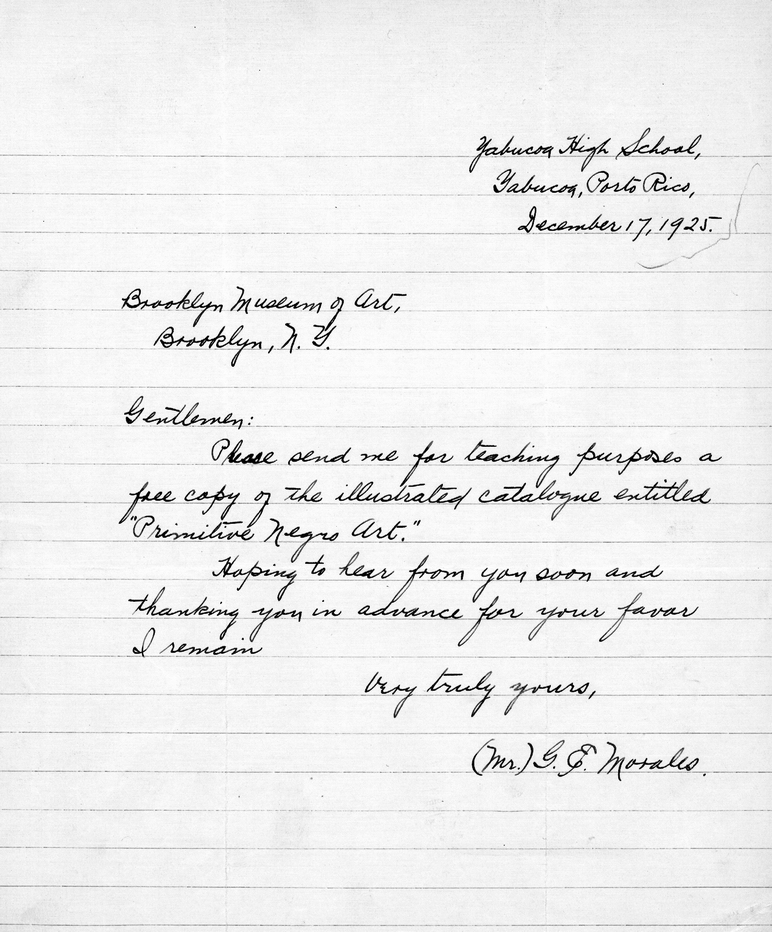 Yabucoa High School,
Yabucoa, Porto Rico,
December 17, 1925.
Brooklyn Museum of Art,
Brooklyn, N. Y.
Gentlemen:
Please send me for teaching purposes a
free copy of the illustrated catalogue entitled
"Primitive Negro Art."
Hoping to hear from you soon and
thanking you in advance for your favor
I remain
Very truly yours,
(Mr.) G. E. Morales.